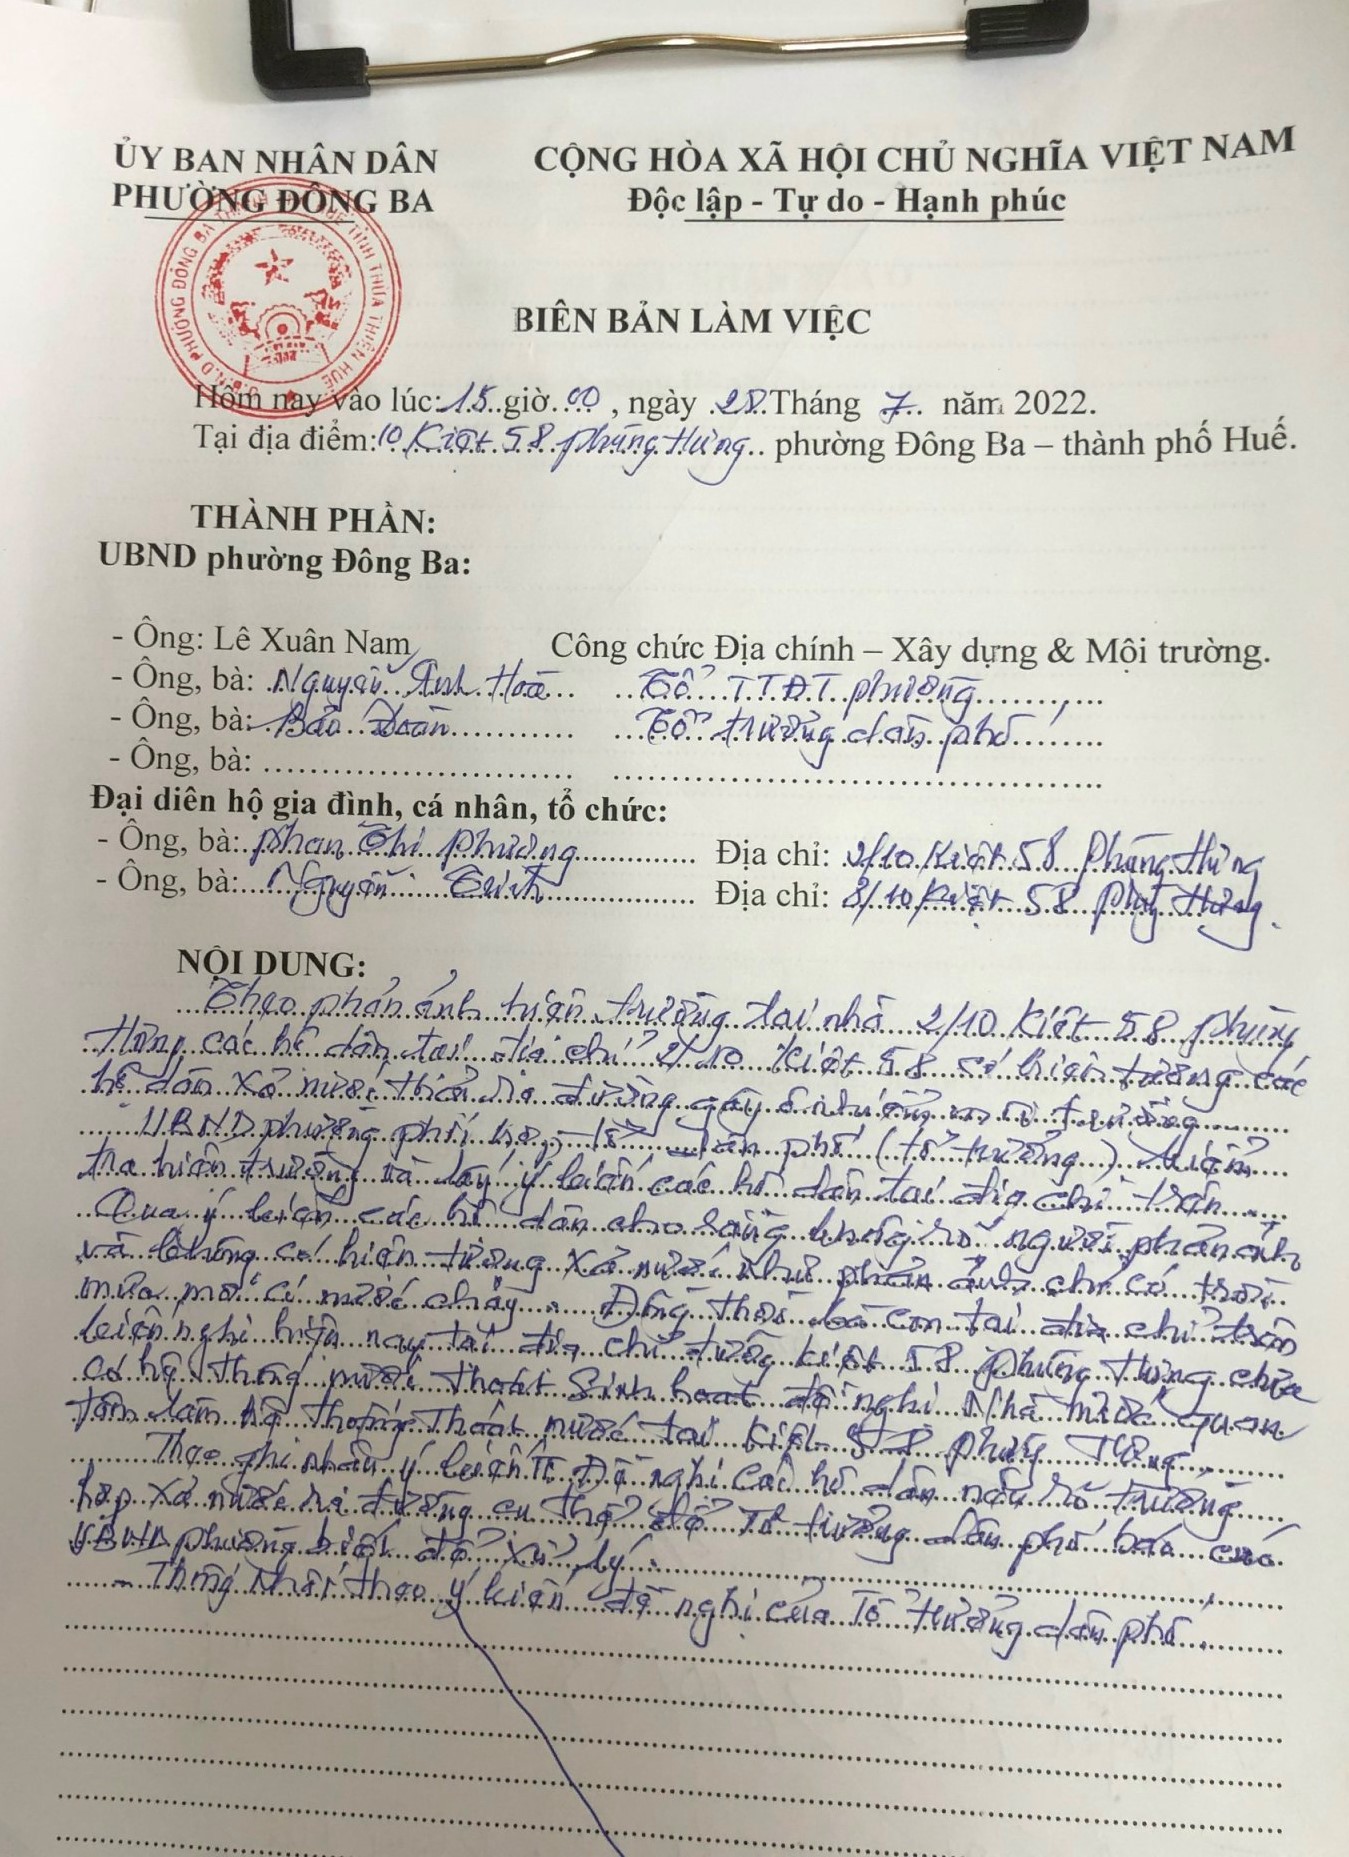 ỦY BAN NHÂN DÂN
PHƯỜNG ĐÔNG BA
CỘNG HÒA XÃ HỘI CHỦ NGHĨA VIỆT NAM
Độc lập - Tự do - Hạnh phúc
U.B.N.D PHƯỜNG ĐÔNG BA HUẾ TỈNH THỪA THIÊN HUẾ
BIÊN BẢN LÀM VIỆC
Hôm nay vào lúc: 15 giờ 00, ngày 28 Tháng 7 năm 2022.
Tại địa điểm: 10 Kiệt 58 Phùng Hưng phường Đông Ba – thành phố Huế.
THÀNH PHẦN:
UBND phường Đông Ba:
- Ông: Lê Xuân Nam Công chức Địa chính – Xây dựng & Mội trường.
- Ông, bà: Nguyễn Anh Hoà Tổ TTĐT phường
- Ông, bà: Bảo Đoàn Tổ trưởng dân phố
- Ông, bà:
Đại diên hộ gia đình, cá nhân, tổ chức:
- Ông, bà: Phan Thị Phương Địa chỉ: 2/10 Kiệt 58 Phùng Hưng
- Ông, bà: Nguyễn Địa chỉ: 8/10 Kiệt 58 Phùng Hưng
NỘI DUNG:
Theo phản ánh hiện trường tại nhà 2/10 Kiệt 58 Phùng
Hưng các hộ dân tại địa chỉ 2/10 Kiệt 58 có hiện tượng các
hộ dân xả nước thải ra đường gây ô nhiễm môi trường
UBND phường phối hợp tổ dân phố (tổ trưởng) kiểm
tra hiện trường và lấy ý kiến các hộ dân tại địa chỉ trên
Qua ý kiến các hộ dân cho rằng không rõ người phản ánh
và không có hiện tượng xả nước như phản ánh chỉ có trời
mưa mới có nước chảy. Đồng thời bà con tại địa chỉ trên
kiến nghị hiện nay tại địa chỉ đường kiệt 58 Phùng Hưng chưa
có hệ thống nước thoát sinh hoạt đề nghị Nhà nước quan
tâm làm hệ thống thoát nước tại kiệt 58 Phùng Hưng.
Theo ghi nhận ý kiến Tổ Đề nghị các hộ dân nêu rõ trường
hợp xả nước ra đường cụ thể để Tổ trưởng dân phố báo cáo
UBND phường biết để xử lý.
- Thống nhất theo ý kiến đề nghị của Tổ trưởng dân phố.